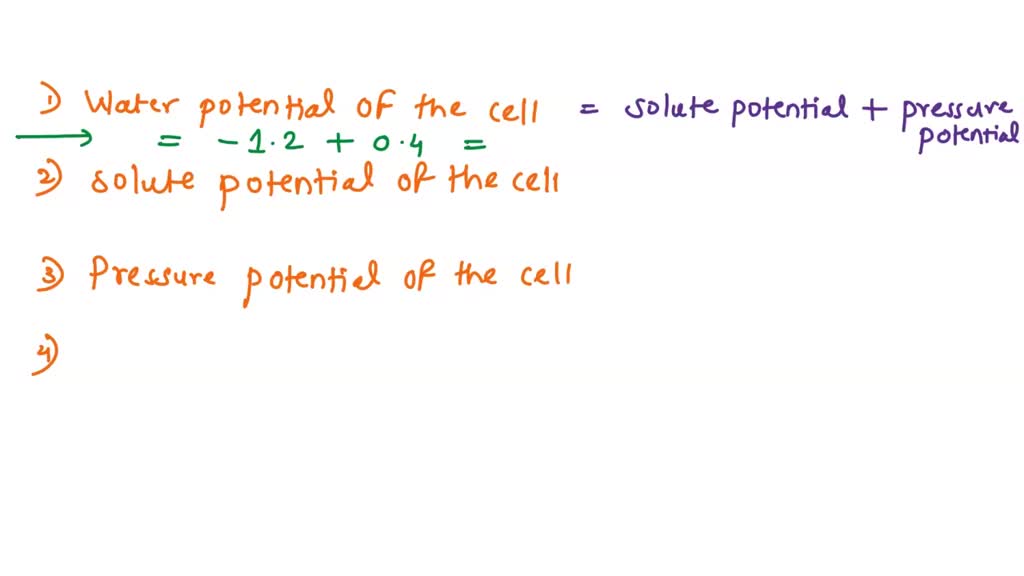 1) Water potential of the cell = solute potential + pressure potential
= -1.2 + 0.4 =
2) solute potential of the cell
3) Pressure potential of the cell
4)